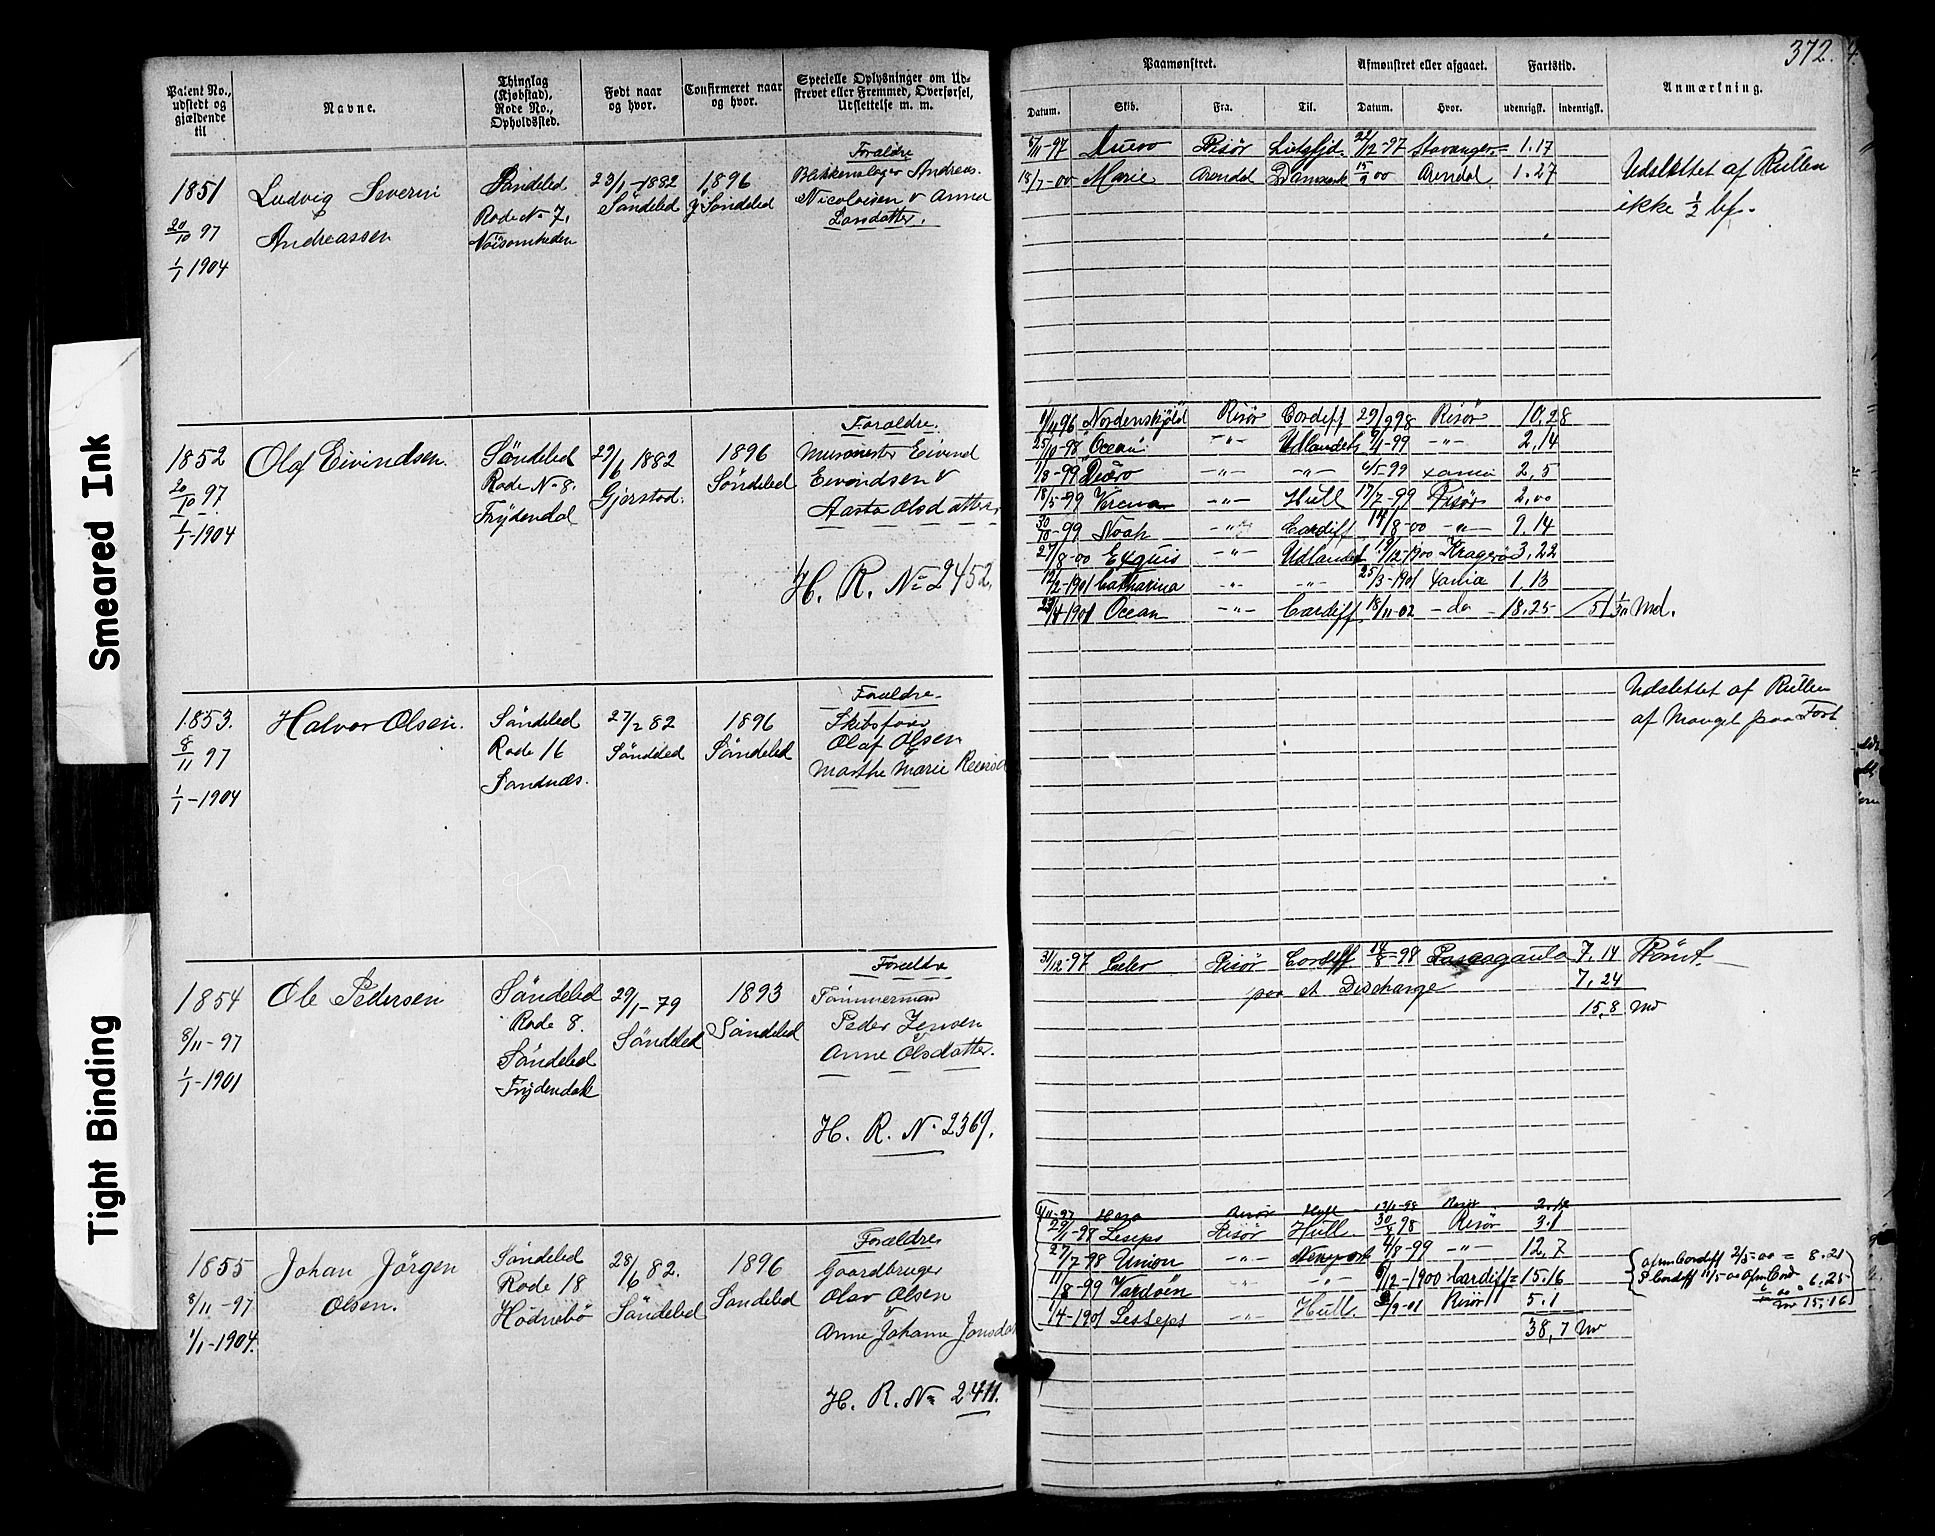 372.
Patent No., udstedt og gjældende til
Navne.
Thinglag (Kjøbstad), Rode No., Opholdssted.
Født naar og hvor.
Confirmeret naar og hvor.
Specielle Oplysninger om Udskrevet eller Fremmed, Overførsel, Udslettelse m. m.
Paamønstret.
Afmønstret eller afgaaet.
Fartstid.
Anmærkning.
Datum. Skib. Fra. Til. Datum. Hvor. udenrigsk. indenrigsk.
1851
20/10 97
1/1 1904
Ludvig Severin
Andreassen
Søndeled
Rode No 7.
Nøisomheden
23/1-1882
Søndeled
1896
Søndeled
Forældre
Andreas
Nicolaisen & Anne
Larsdatter.
5/11-97 Duero Risør 22/12-97 Stavanger 1.17
18/7-00 Marie Arendal Danmark 15/9 00 Arendal 1.27
Udslettet af Rullen
ikke 1/2 bf.
1852
20/10 97.
1/1-1904
Olaf Eivindsen.
Søndeled
Rode No 8.
Frydendal
29/6 1882
Gjerstad.
1896
Søndeled
Forældre.
Murmester Eivind
Eivindsen &
Aasta Olsdatter
H. R. No 2452.
Nordenskjöld Risør Cardiff 29/9 98 Risør 10,28
25/10-98 Ocean -"- Udlandet -"- 2,14
1/3-99 Duero -"- -"- 4/5 99 Xania 2,5
18/5-99 Verena -"- Hull 17/7-99 Risør 2,00
30/10-99 Noah -"- Cardiff 14/8-00 -"- 9.14
27/8-00 Exquis -"- Udlandet 19/12-1900 Kragerø 3,22
12/2-1901 Catharina -"- -"- 25/3-1901 Xania 1.13
23/4-1901 Ocean -"- Cardiff 18/11-02 - do - 18.25 / 51 1/30 Md.
1853.
8/11 97
1/1-1904
Halvor Olsen.
Søndeled
Rode 16
Sandnæs.
27/2 82
Søndeled
1896
Søndeled
Forældre.
Skibsfører
Olaf Olsen
Marthe Marie
Udslettet af Rullen
af Mangel paa Fart.
1854
8/11-97
1/1-1901
Ole Pedersen
Søndeled
Rode 8.
Søndeled
Frydendal
29/1-79
Søndeled
1893
Søndeled
Forældre
Tømmermand
Peder Jensen
Anne Olsdatter.
H. R. No 2369.
31/12-97 Risør Cardiff 14/8-98 Pascagaula 7.14 Rømt.
paa et Discharge 7,24
15,8 Md
1855
8/11-97
1/1-1904.
Johan Jörgen
Olsen.
Søndeled
Rode 18
Hödnebö
28/6 82.
Søndeled
1896
Søndeled
Forældre
Gaardbruger
Olav Olsen
Anne Johanne
H. R. No 2411.
11-97 Risør Hull 13/1-98 Risør
29/1-98 Leseps Risør Hull. 30/4 98 Risør 3.1
27/7-98 Union -"- Newport 4/8-99 -"- 12,7
11/8-99 Vardöen -"- -"- 12-1900 Cardiff = 15.16
1/4-1901 Lesseps -"- Hull. 9-01 Risør 5.1
38,7 Md
afm Cardiff 2/5-00 = 8.21
Cardiff 11/5-00 6,25
15,16
Smeared Ink
Tight Binding